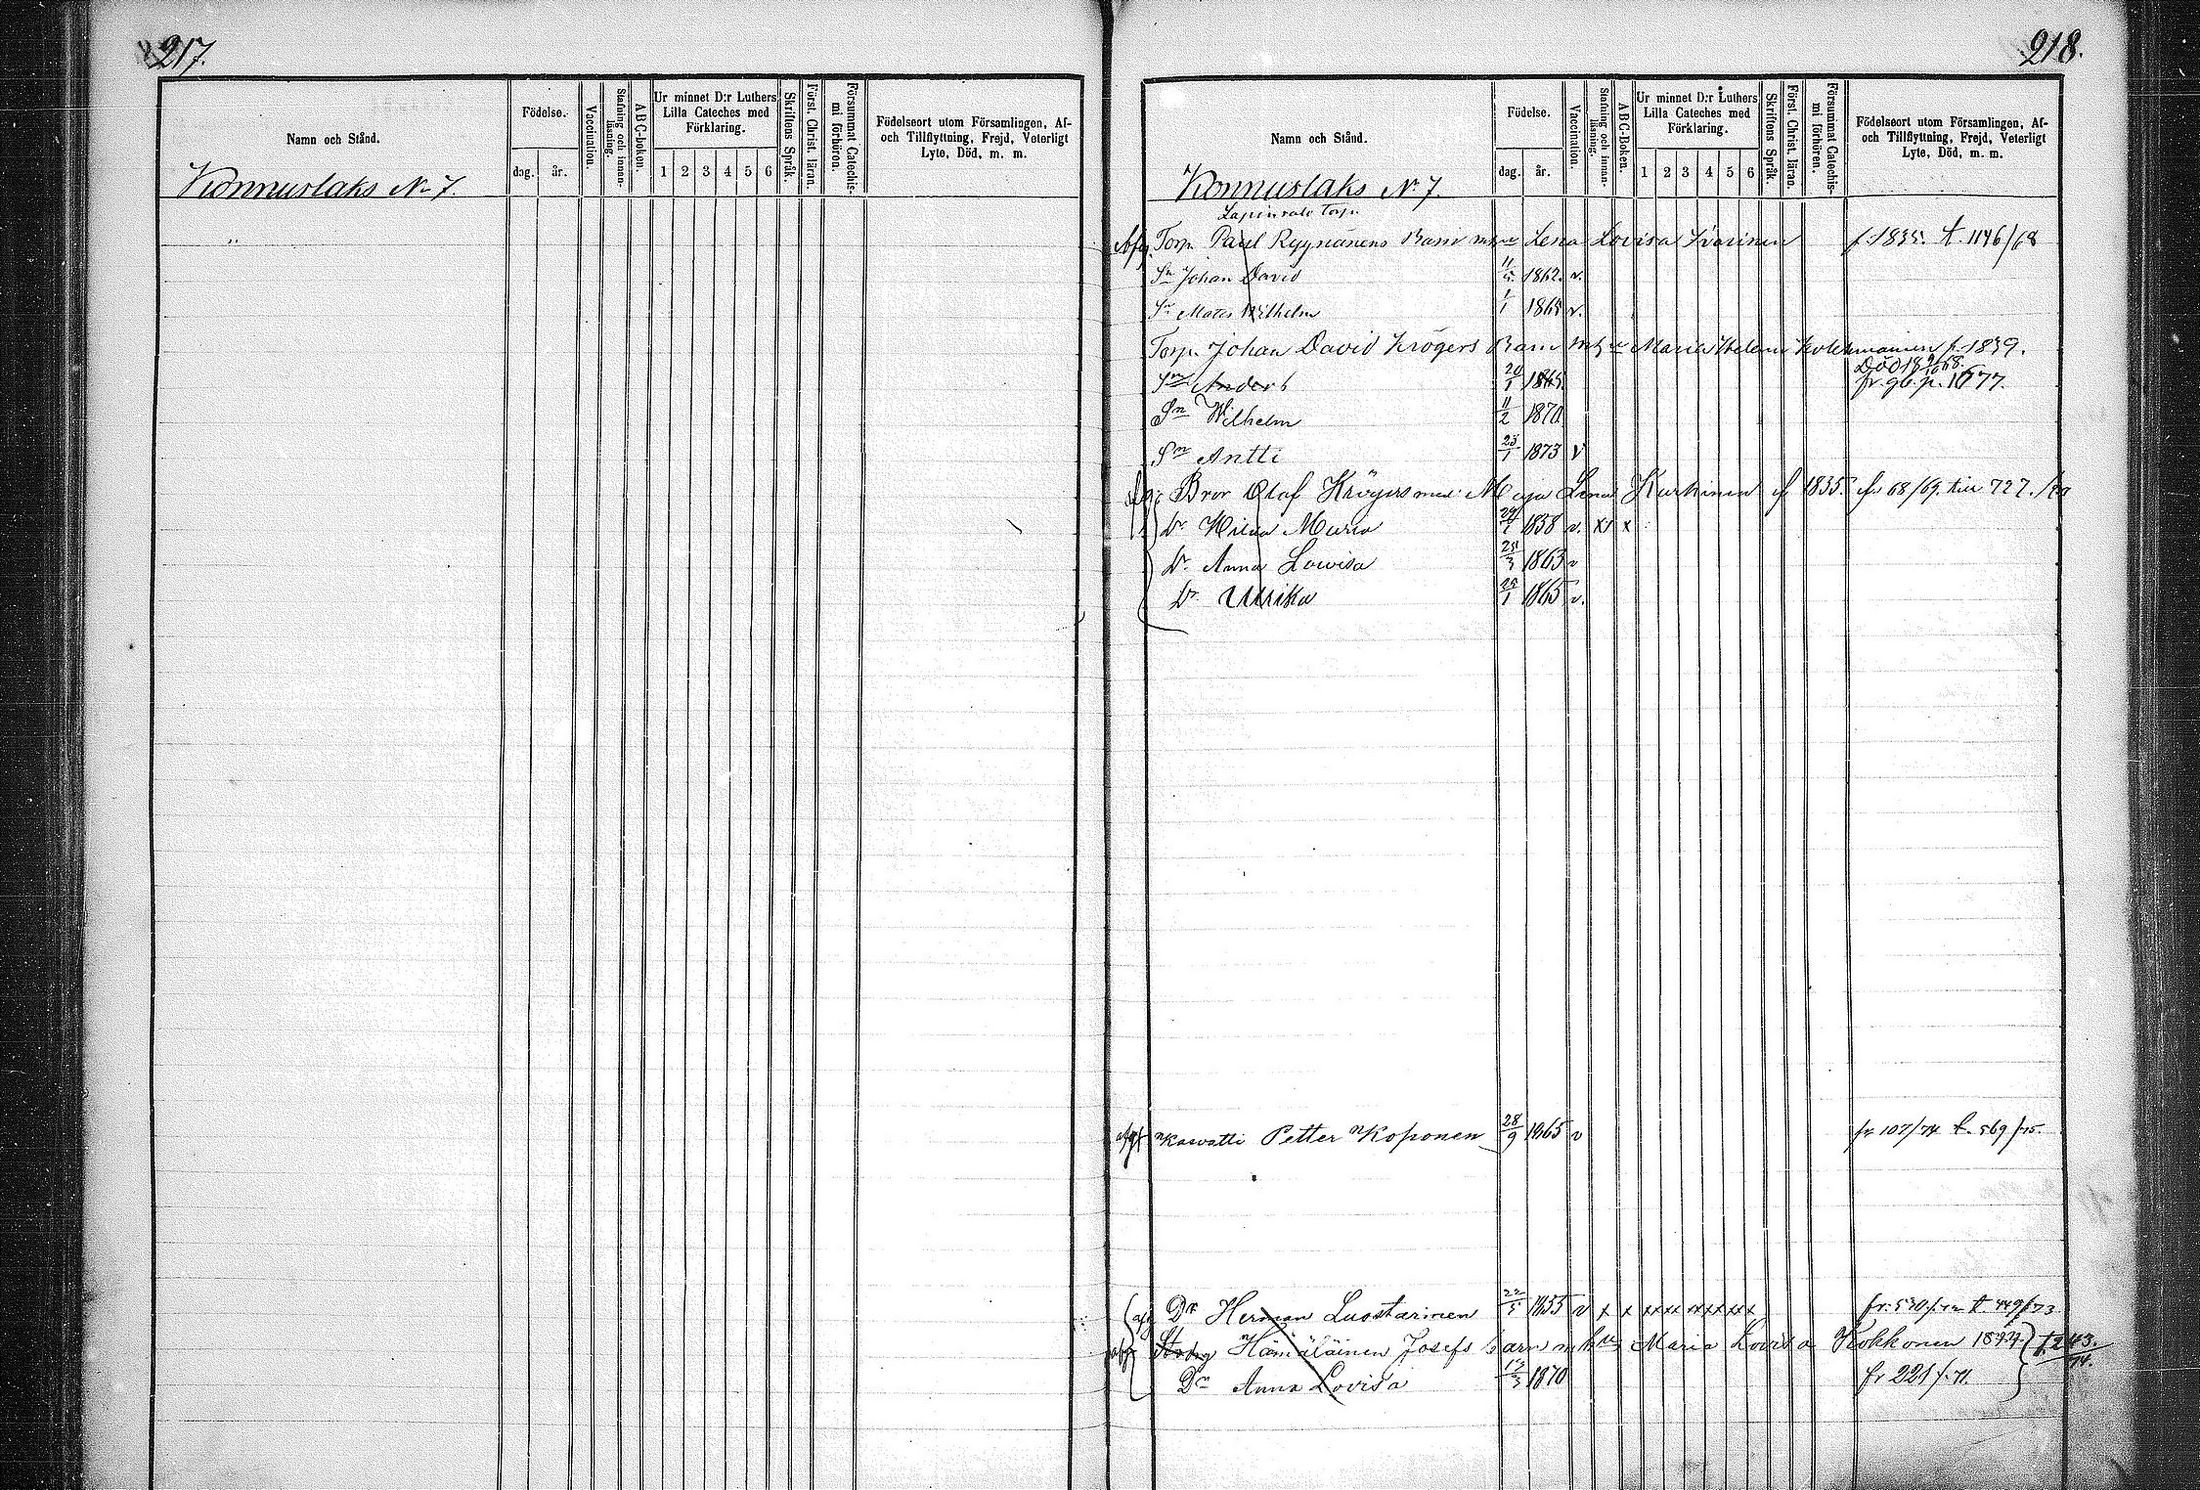 217.
Namn och Stånd.
Födelse.
dag.
år.
Vaccination.
Stafning och innan-
läsning.
ABC-boken.
Ur minnet D:r Luthers
Lilla Cateches med
Förklaring.
1 2 3 4 5 6
Skriftens Språk.
Först. Christ. läran.
Försummat Catechis-
mi förhören.
Födelseort utom Församlingen, Af-
och Tillflyttning, Frejd, Veterligt
Lyte, Död, m. m.
Konnuslaks No 7.
218.
Namn och Stånd.
Födelse.
dag.
år.
Vaccination.
Stafning och innan-
läsning.
ABC-boken.
Ur minnet D:r Luthers
Lilla Cateches med
Förklaring.
1 2 3 4 5 6
Skriftens Språk.
Först. Christ. läran.
Försummat Catechis-
mi förhören.
Födelseort utom Församlingen, Af-
och Tillflyttning, Frejd, Veterligt
Lyte, Död, m. m.
Konnuslaks No 7.
Torp.
Torp. Paul Ryynänens Barn Lena Lovisa f. 1835. t. 1146/68
Sn Johan David 11/5 1862. v.
Sn Mats Wilhelm 1/1 1865 v.
Torp. Johan David Krögers Barn m h Maria Helena Kolehmainen f. 1839.
Död 68.
Sn Anders 20/1 1865
Sn Wilhelm 11/2 1870
Sn Antti 23/1 1873 v
Bror Olaf Krögers med Maja Lena Kurkinen f 1835. fr 68/69. till 727./70
Dr Maria 1858 v. x x
Dr Anna Lovisa 25/3 1863 v
Dr Ulrika 25/1 1865 v.
afg Petter Koponen 28/9 1865 v fr 107/74 t. 569/75.
afg Dr Herman Luostarinen 22/5 1855 v x x xx xx xx xx t 449/73
Hämäläinen Josefs barn m hu Maria Lovisa Kokkonen 1844. t. 243./74.
Dr Anna Lovisa 13/3 1870 fr 221/71.